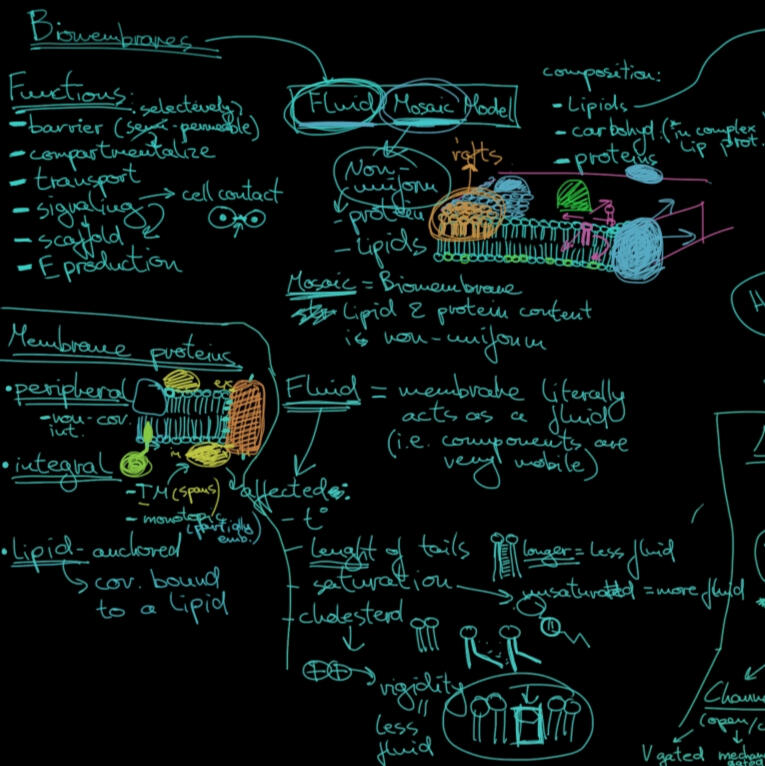 Biomembranes
Functions:
selectively
- barrier (semi-permeable)
- compartmentalize
- transport
- signaling → cell contact
- scaffold
- E production
Fluid Mosaic Model
Non-uniform
- protein
- Lipids
rafts
composition:
- Lipids
- carbohyd. (in complex
Lip prot.
- proteins
Mosaic = Biomembrane
Lipid & protein content
is non-uniform
Membrane proteins
• peripheral
- non-cov.
int.
• integral
- TM (spans)
- monotopic (partially
emb.)
• Lipid-anchored
cov. bound
to a Lipid
ex
Fluid = membrane literally
acts as a fluid
(i.e. components are
very mobile)
affected:
- t°
- lenght of tails
longer = less fluid
- saturation → unsaturated = more fluid
- cholesterol
rigidity
=
less
fluid
Chann
(open/c
V gated
mechan
gated